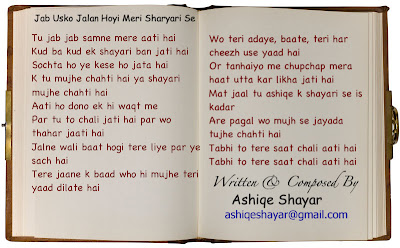 Jab Usko Jalan Hoyi Meri Sharyari Se
Tu jab jab samne mere aati hai
Kud ba kud ek shayari ban jati hai
Sochta ho ye kese ho jata hai
K tu mujhe chahti hai ya shayari
mujhe chahti hai
Aati ho dono ek hi waqt me
Par tu to chali jati hai par wo
thahar jaati hai
Jalne wali baat hogi tere liye par ye
sach hai
Tere jaane k baad who hi mujhe teri
yaad dilate hai
Wo teri adaye, baate, teri har
cheezh use yaad hai
Or tanhaiyo me chupchap mera
haat utta kar likha jati hai
Mat jaal tu ashiqe k shayari se is
kadar
Are pagal wo mujh se jayada
tujhe chahti hai
Tabhi to tere saat chali aati hai
Tabhi to tere saat chali aati hai
Written & Composed By
Ashiqe Shayar
ashiqeshayar@gmail.com